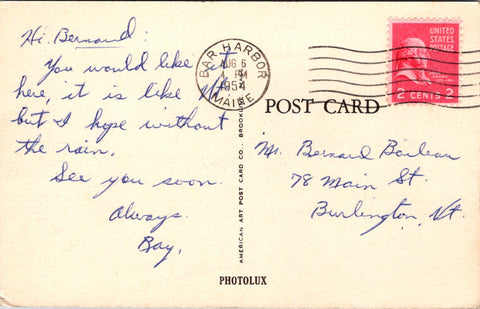 Hi Bernard:
You would like it
here, it is like Vt
but I hope without
the rain.
See you soon.
Always.
Bay,
BAR HARBOR
AUG 6
4 PM
1954
MAINE
UNITED
STATES
POSTAGE
2 CENTS 2
POST CARD
Mr. Bernard Boileau
78 Main St.
Burlington, Vt.
AMERICAN ART POST CARD CO., BROOKL
PHOTOLUX